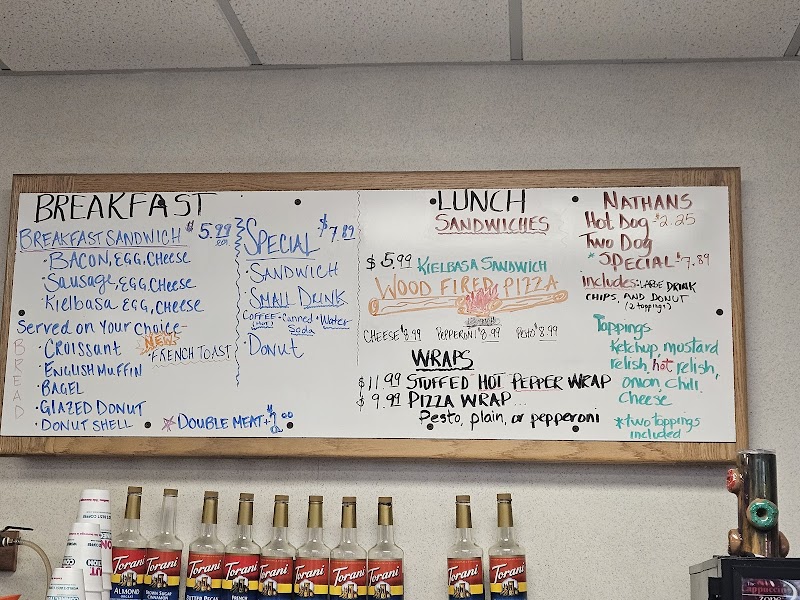 BREAKFAST
BREAKFAST SANDWICH $5.99 ea.
• BACON, EGG, CHEESE
• Sausage, EGG, CHEESE
• Kielbasa EGG, CHEESE
Served on Your Choice-
BREAD
• CROISSANT
NEW
FRENCH TOAST
• ENGLISH MUFFIN
• BAGEL
• GLAZED DONUT
• DONUT SHELL
DOUBLE MEAT +$1.00 ea
SPECIAL $7.89
• SANDWICH
• SMALL DRINK
COFFEE • Canned • Water
(HOT) Soda
• DONUT
LUNCH
SANDWICHES
$5.99 KIELBASA SANDWICH
WOOD FIRED PIZZA
CHEESE $8.99 PEPPERONI $8.99 PESTO $8.99
WRAPS
$11.99 STUFFED HOT PEPPER WRAP
$9.99 PIZZA WRAP...
Pesto, plain, or pepperoni
NATHANS
Hot Dog $2.25
Two Dog
* SPECIAL $7.89
includes: LARGE DRINK
CHIPS, AND DONUT
(2 toppings)
Toppings
Ketchup, mustard
relish, hot relish,
onion, chili,
cheese
*two toppings
included
Torani
ALMOND
Torani
BROWN SUGAR
CINNAMON
Torani
BUTTER PECAN
Torani
FRENCH
Torani
Torani
Torani
Torani
Torani
The
Cappuccino
Zone